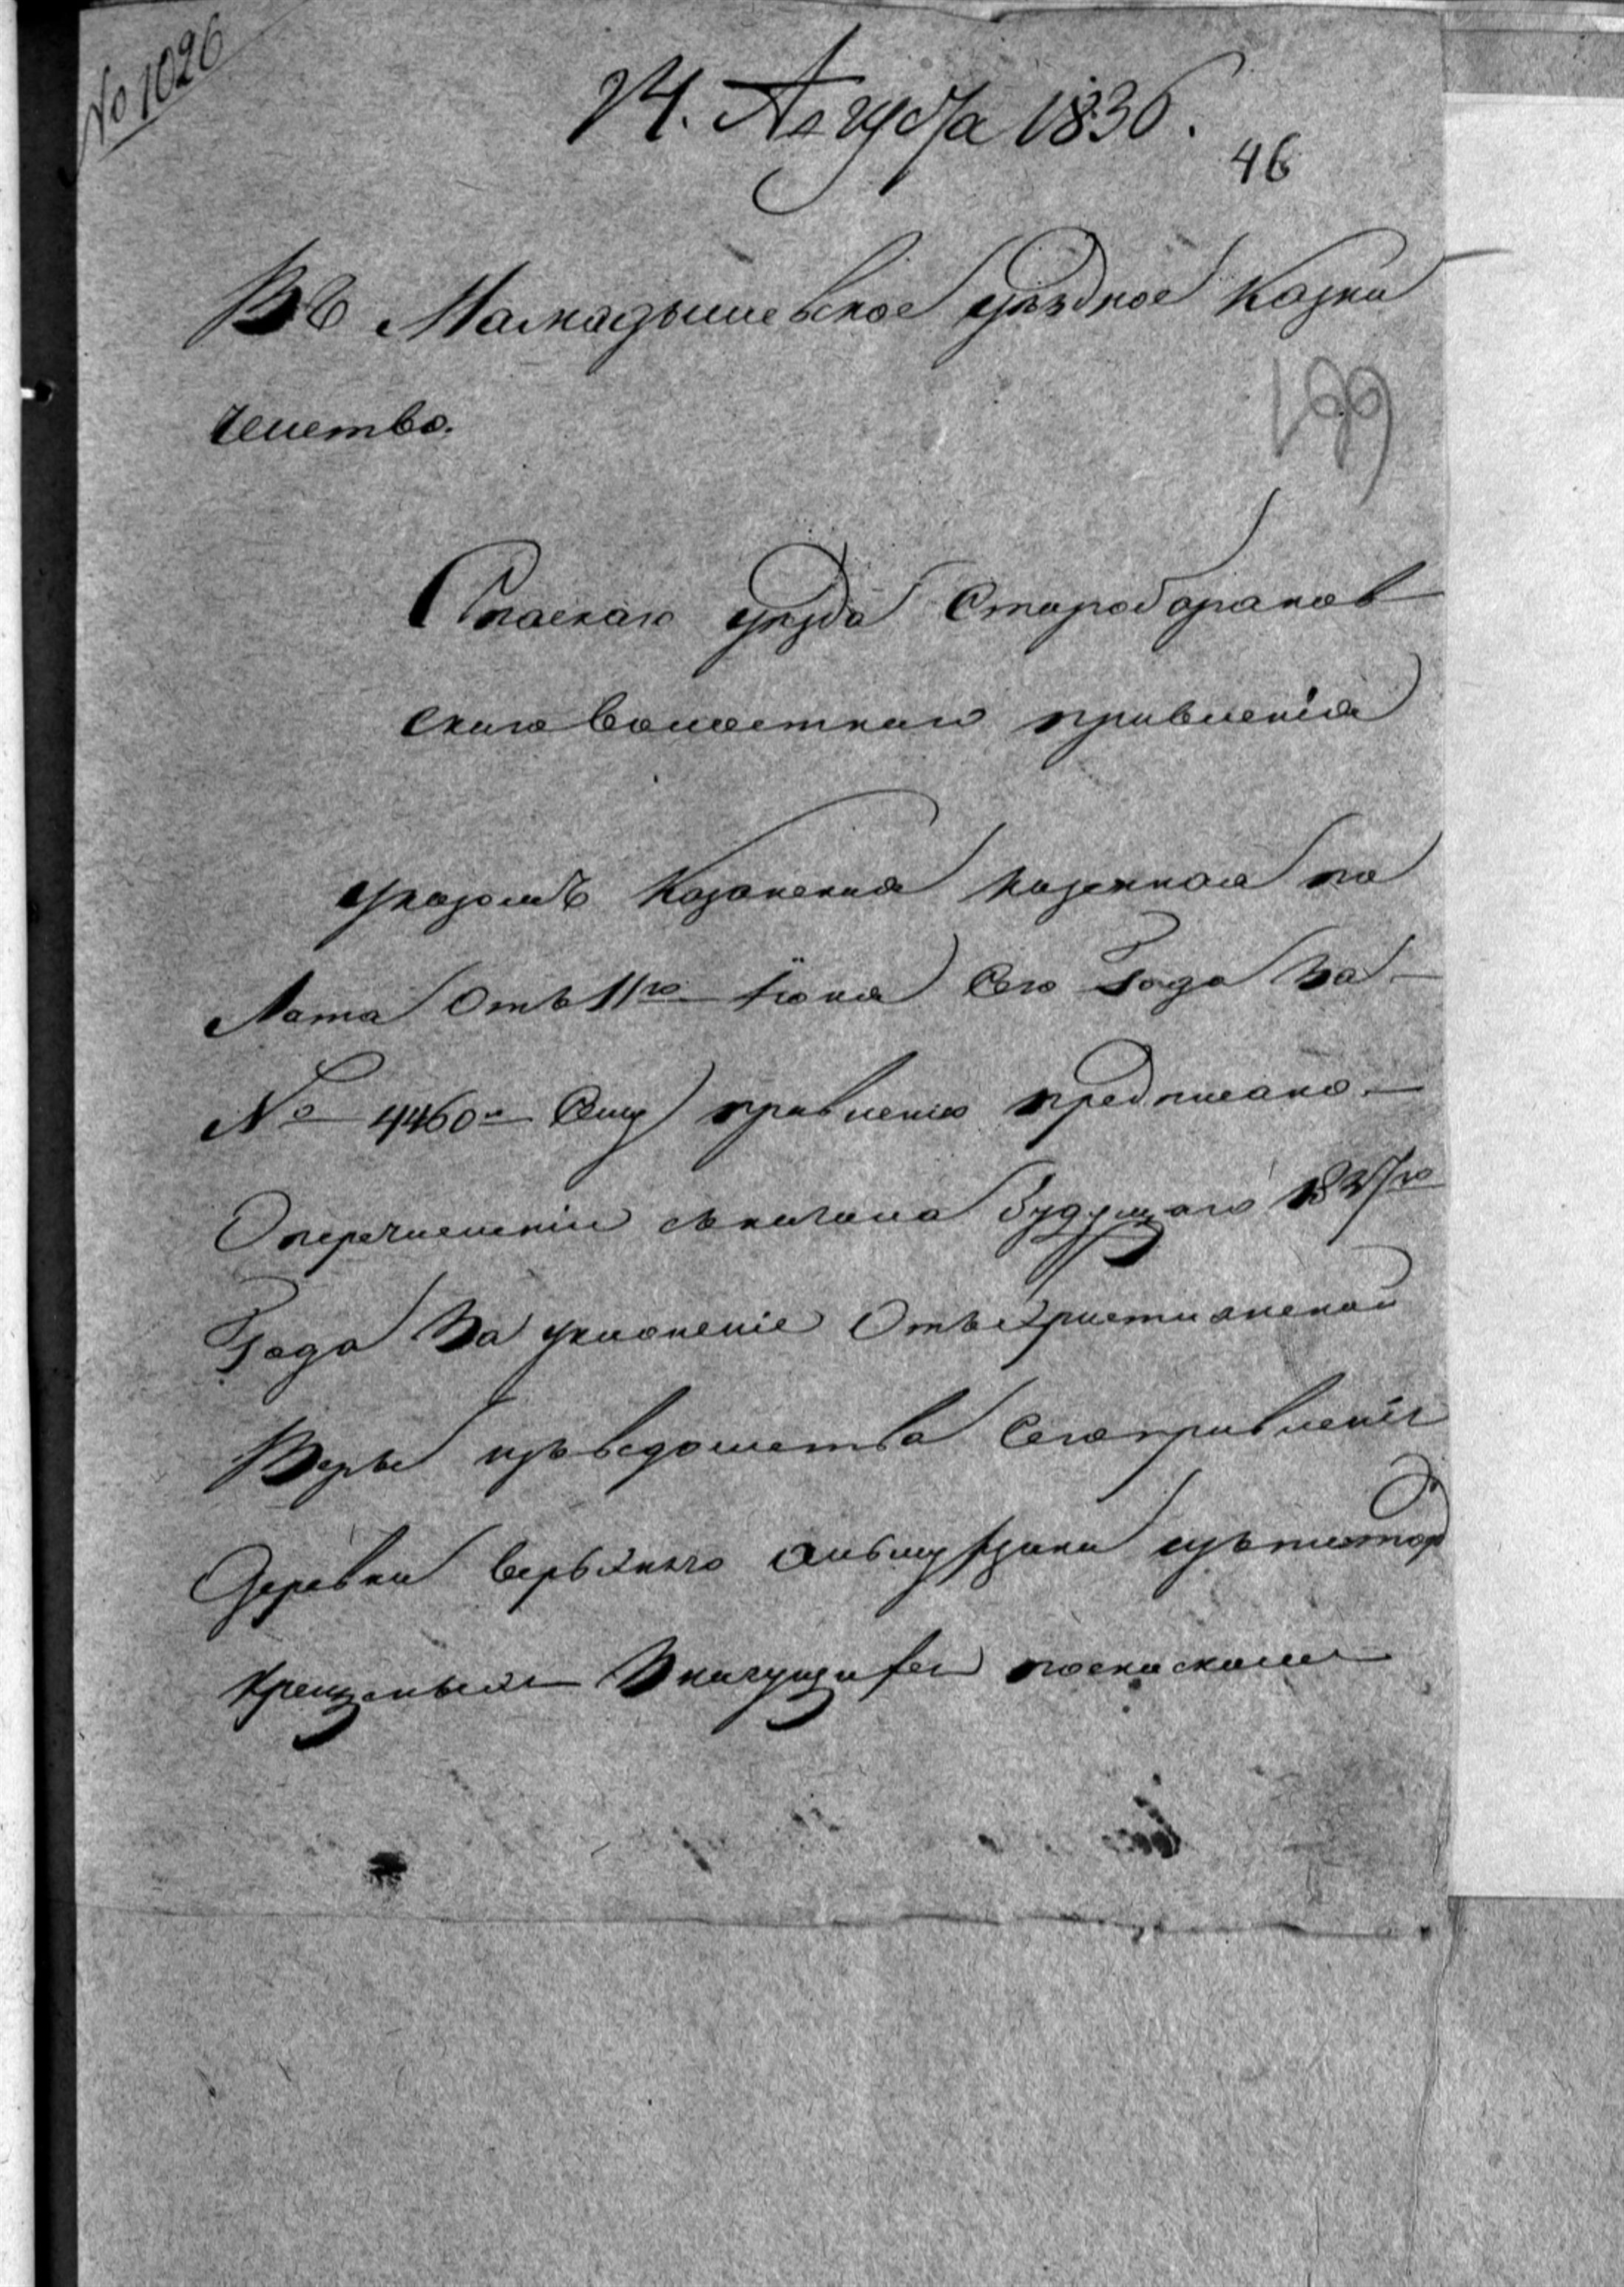 No 1026
24. Августа 1836.
46
Въ Мамадышевское уѣздное казна
чейство.
199
Спаскаго уѣзда Старобаранов
скаго волостнаго правленія
Указомъ Казанская казенная па
лата отъ 11го Іюня сего года за
№ 4460м сему правленію предписано
О перечисленіи съ начала будущаго 1837го
года за уклоненіе отъ христианской
веры изъ ведомства сего правленія
деревни верьхняго изъ татар
крещеныхъ значущихся по сказкамъ